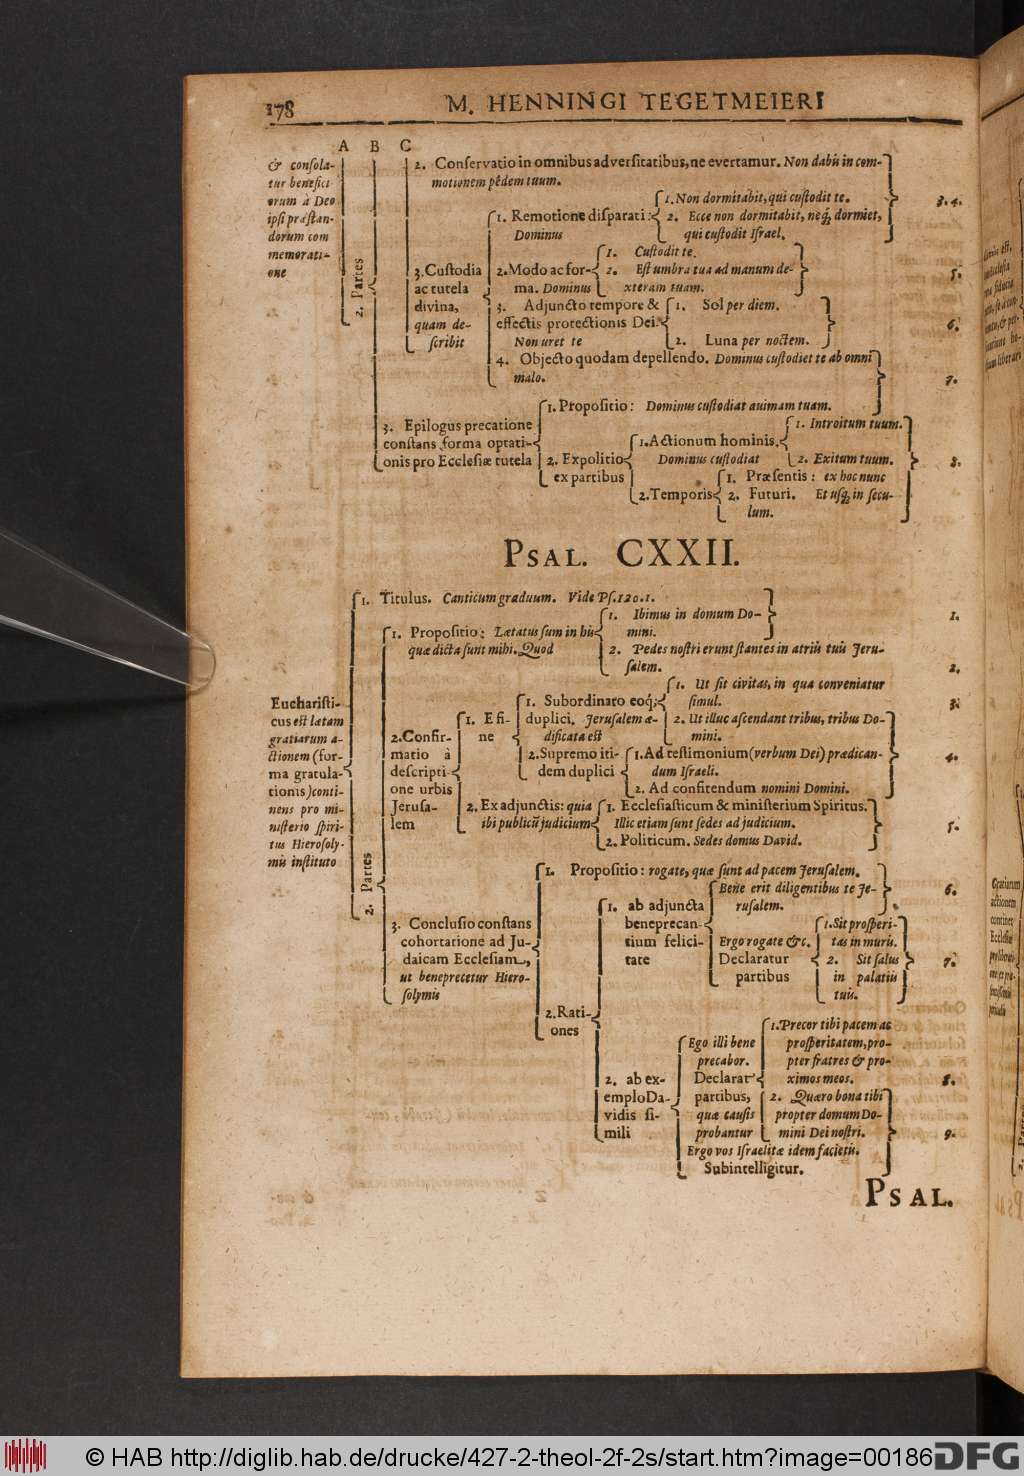 178
M. HENNINGI TEGETMEIERI
A B C
& consola-
tur benefici
orum à Deo
ipsi præstan-
dorum com
memorati-
one
2. Partes
2. Conservatio in omnibus adversitatibus, ne evertamur. Non dabit in com-
motionem pedem tuum.
3. Custodia
ac tutela
divina,
quam de-
scribit
1. Remotione disparati:
Dominus
1. Non dormitabit, qui custodit te.
2. Ecce non dormitabit, neq; dormiet,
qui custodit Israel.
3. 4.
2. Modo ac for-
ma. Dominus
1. Custodit te.
2. Est umbra tua ad manum de-
xteram tuam.
5.
3. Adjuncto tempore &
effectis protectionis Dei.
Non uret te
1. Sol per diem.
2. Luna per noctem.
6.
4. Objecto quodam depellendo. Dominus custodiet te ab omni
malo.
7.
3. Epilogus precatione
constans forma optati-
onis pro Ecclesiæ tutela
1. Propositio: Dominus custodiat animam tuam.
2. Expolitio
ex partibus
1. Actionum hominis.
Dominus custodiat
1. Introitum tuum.
2. Exitum tuum.
8.
2. Temporis
1. Præsentis: ex hoc nunc
2. Futuri. Et usq; in secu-
lum.
PSAL. CXXII.
Eucharisti-
cus est lætam
gratiarum a-
ctionem (for-
ma gratula-
tionis) conti-
nens pro mi-
nisterio spiri-
tus Hierosoly-
mis instituto
1. Titulus. Canticum graduum. Vide Ps. 120. 1.
2. Partes
1. Propositio: Lætatus sum in his
quæ dicta sunt mihi. Quod
1. Ibimus in domum Do-
mini.
1.
2. Pedes nostri erunt stantes in atriis tuis Jeru-
salem.
2.
2. Confir-
matio à
descripti-
one urbis
Jerusa-
lem
1. E fi-
ne
1. Subordinato eoq;
duplici. Jerusalem æ-
dificata est
1. Ut sit civitas, in qua conveniatur
simul.
3.
2. Ut illuc ascendant tribus, tribus Do-
mini.
2. Supremo iti-
dem duplici
1. Ad testimonium (verbum Dei) prædican-
dum Israeli.
2. Ad confitendum nomini Domini.
4.
2. Ex adjunctis: quia
ibi publicũ judicium
1. Ecclesiasticum & ministerium Spiritus.
Illic etiam sunt sedes ad judicium.
2. Politicum. Sedes domus David.
5.
3. Conclusio constans
cohortatione ad Ju-
daicam Ecclesiam,
ut beneprecetur Hiero-
solymis
1. Propositio: rogate, quæ sunt ad pacem Jerusalem.
2. Rati-
ones
1. ab adjuncta
beneprecan-
tium felici-
tate
Bene erit diligentibus te Je-
rusalem.
6.
Ergo rogate &c.
Declaratur
partibus
1. Sit prosperi-
tas in muris.
2. Sit salus
in palatiis
tuis.
7.
2. ab ex-
emplo Da-
vidis si-
mili
Ego illi bene
precabor.
Declarat
partibus,
quæ causis
probantur
1. Precor tibi pacem ac
prosperitatem, pro-
pter fratres & pro-
ximos meos.
8.
2. Quæro bona tibi
propter domum Do-
mini Dei nostri.
9.
Ergo vos Israelitæ idem facietis.
Subintelligitur.
PSAL.
Gratiarum
actionem
continet
Ecclesiæ
© HAB http://diglib.hab.de/drucke/427-2-theol-2f-2s/start.htm?image=00186
DFG